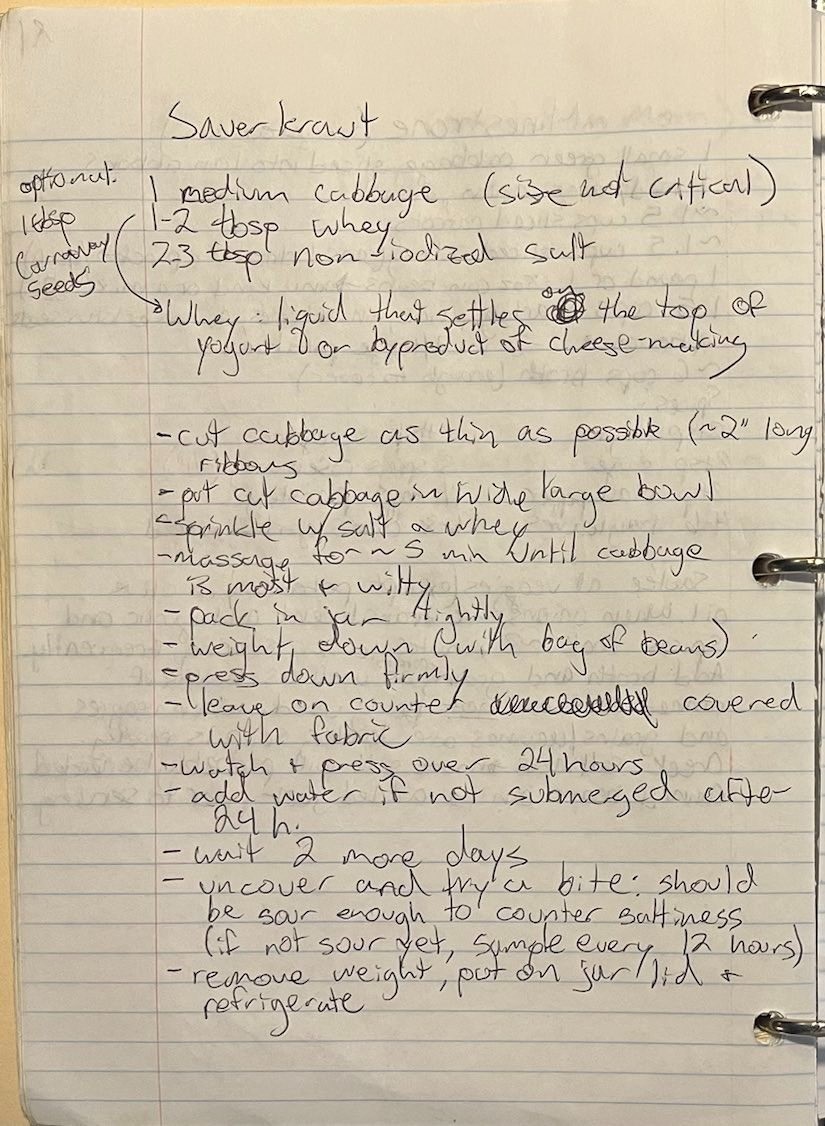 Sauerkraut
optional:
1 tbsp
Carraway
seeds
1 medium cabbage (size not critical)
1-2 tbsp whey
2-3 tbsp non-iodized salt
Whey: liquid that settles on the top of
yogurt or byproduct of cheese-making
- cut cabbage as thin as possible (~2" long
ribbons
- put cut cabbage in wide large bowl
- sprinkle w/ salt & whey
- massage for ~5 min until cabbage
is most + wilty
- pack in jar tightly
- weight down (with bag of beans)
- press down firmly
- leave on counter covered
with fabric
- watch + press over 24 hours
- add water if not submerged after
24 h.
- wait 2 more days
- uncover and try a bite: should
be sour enough to counter saltiness
(if not sour yet, sample every 12 hours)
- remove weight, put on jar lid +
refrigerate